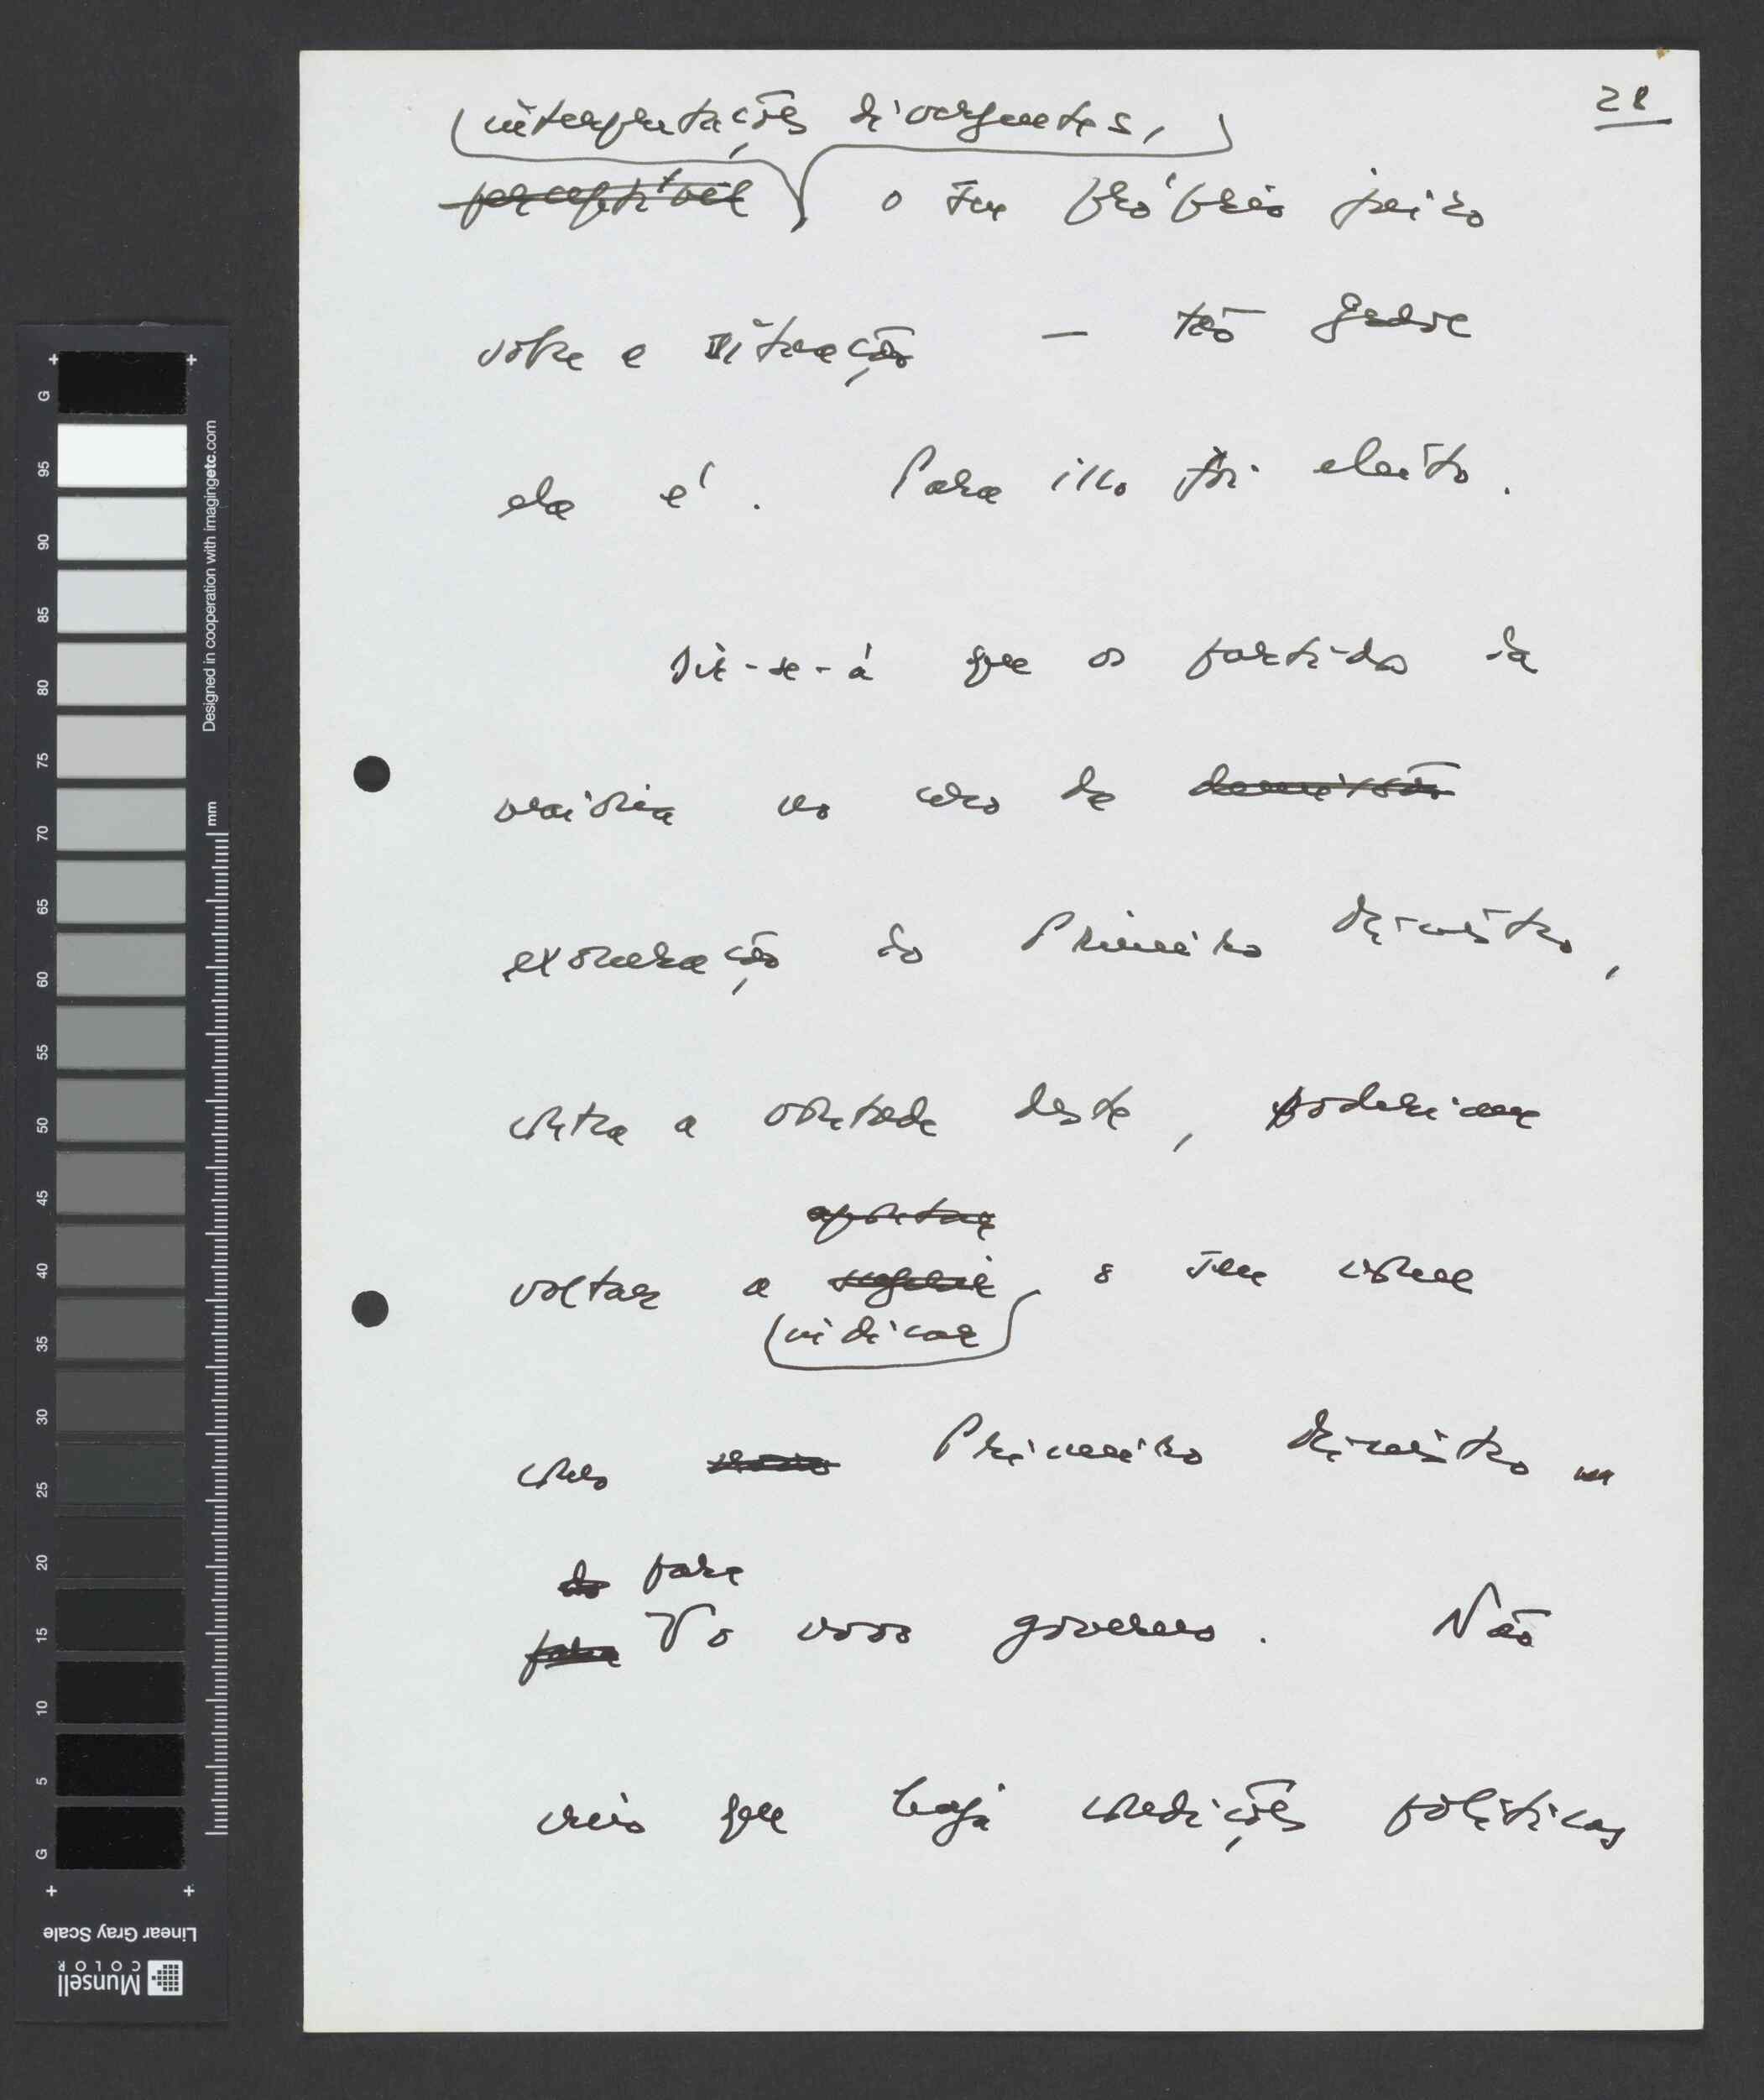 28
interpretações divergentes,
perceptível o seu próprio juízo
sobre a situação — tão grave
ela é. Para isso foi eleito.
Dir-se-á que os partidos da
maioria no caso de demissão
exoneração do Primeiro Ministro,
contra a vontade deste, poderiam
apontar
voltar a sugerir o seu nome
indicar
como Primeiro Ministro
do para
para o novo governo. Não
creio que haja condições políticas
G
95
90
85
80
75
70
65
60
55
50
45
40
35
30
25
20
15
10
5
G
mm
Designed in cooperation with imagingetc.com
Linear Gray Scale
Munsell
COLOR